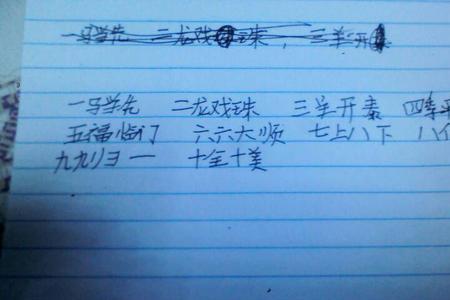 一马当先 二龙戏珠, 三羊开
一马当先 二龙戏珠 三羊开泰 四季平
五福临门 六六大顺 七上八下 八
九九归一 十全十美